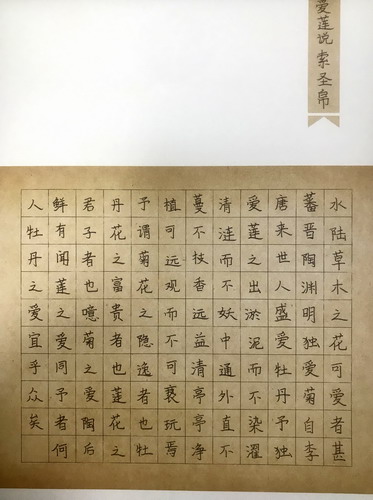 爱莲说 索圣帛
水陆草木之花可爱者甚
蕃晋陶渊明独爱菊自李
唐来世人盛爱牡丹予独
爱莲之出淤泥而不染濯
清涟而不妖中通外直不
蔓不枝香远益清亭亭净
植可远观而不可亵玩焉
予谓菊花之隐逸者也牡
丹花之富贵者也莲花之
君子者也噫菊之爱陶后
鲜有闻莲之爱同予者何
人牡丹之爱宜乎众矣